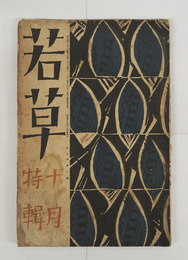 若草
十月
特輯